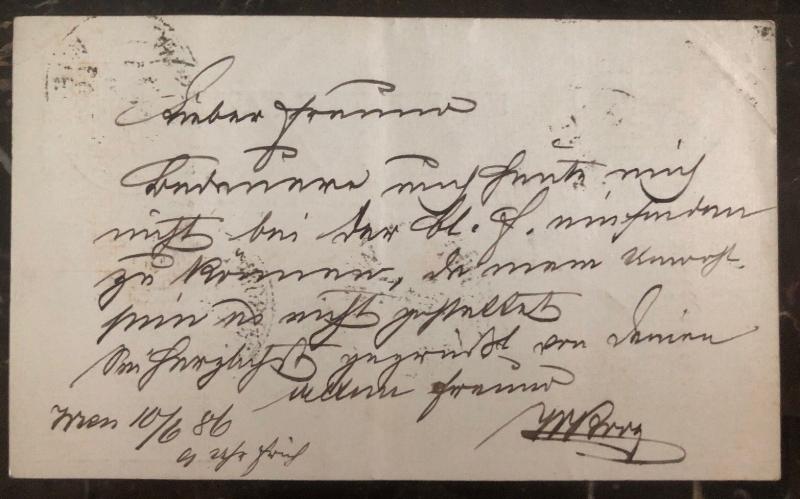 Lieber Freund
Bedauere auch heute mich
nicht bei der Bl. F. einfinden
zu können, da mein Unwohl-
sein es nicht gestattet
Sei herzlichst gegrüßt von Deinem
Freund
Wien 10/6 86
9 Uhr früh